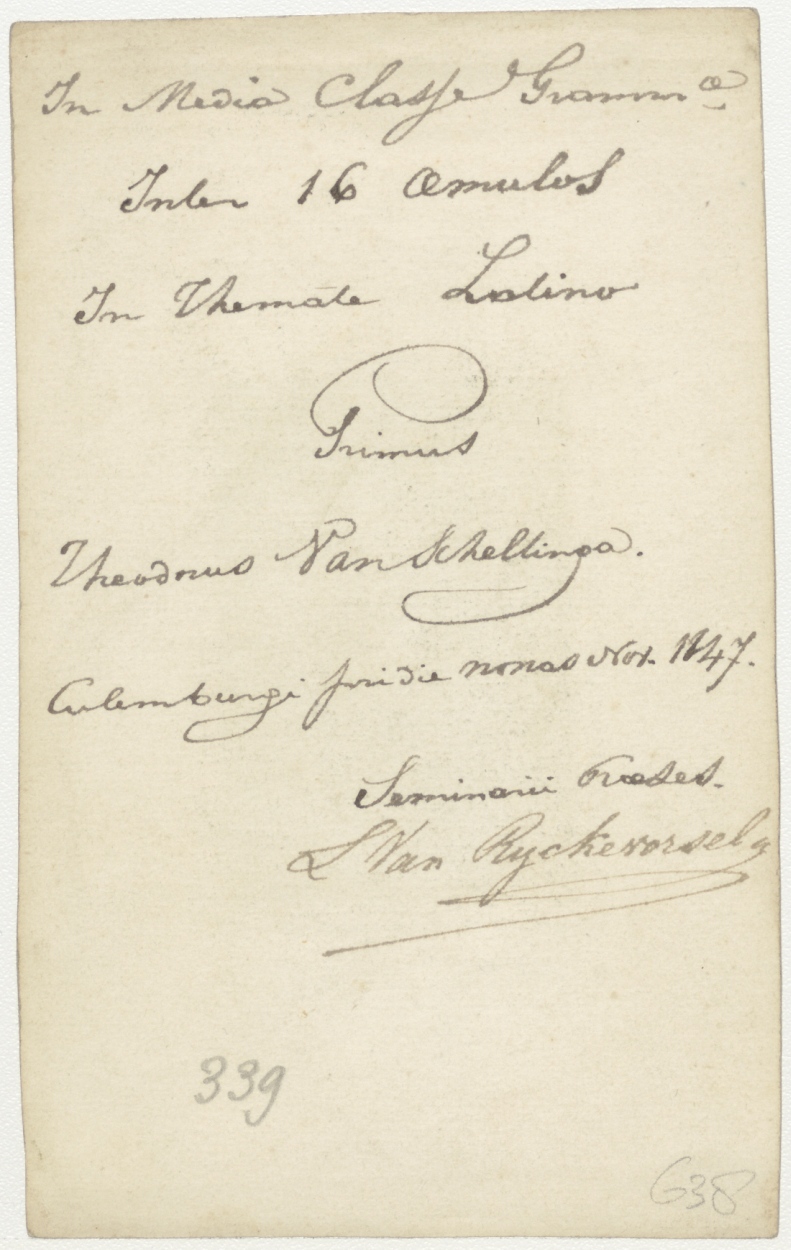 In Media Classe Gramm.æ
Inter 16 œmulos
In Themate Latino
Primus
Theodorus Van Schellinga.
Culemburgi pridie nonas Nov. 1847.
Seminarii Præses.
L Van Ryckevorsel
339
638